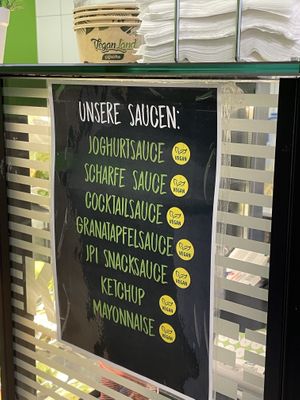 Vegan Land
UNSERE SAUCEN:
JOGHURTSAUCE VEGAN
SCHARFE SAUCE VEGAN
COCKTAILSAUCE VEGAN
GRANATAPFELSAUCE VEGAN
JPI SNACKSAUCE VEGAN
KETCHUP VEGAN
MAYONNAISE VEGAN